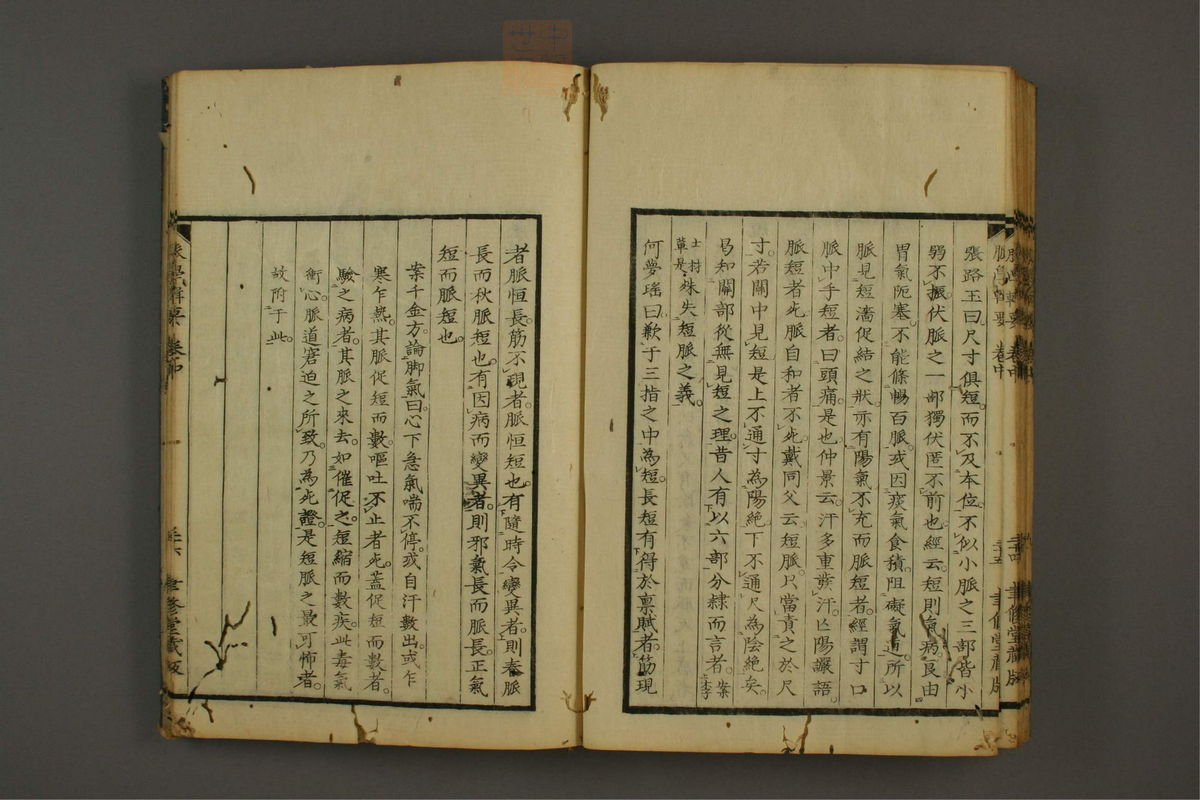 張路玉曰尺寸俱短而不及本位不似小脈之三部皆小
弱不振伏脈之一部獨伏匿不前也經云短則氣病良由
胃氣阨塞不能條暢百脈或因痰氣食積阻礙氣道所以
脈見短濇促結之狀亦有陽氣不充而脈短者經謂寸口
脈中手短者曰頭痛是也仲景云汗多重發汗亡陽讝語
脈短者死脈自和者不死戴同父云短脈只當責之於尺
寸若關中見短是上不通寸為陽絕下不通尺為陰絕矣
曷知關部從無見短之理昔人有以六部分隸而言者案李
士材輩是殊失短脈之義
何夢瑤曰歉于三指之中為短長短有得於稟賦者筋現
者脈恒長筋不現者脈恒短也有隨時令變異者則春脈
長而秋脈短也有因病而變異者則邪氣長而脈長正氣
短而脈短也
案千金方論脚氣曰心下急氣喘不停或自汗數出或乍
寒乍熱其脈促短而數嘔吐不止者死蓋促短而數者
驗之病者其脈之來去如催促之短縮而數疾此毒氣
衝心脈道窘迫之所致乃為死證是短脈之最可怖者
故附于此
脈學輯要 卷中
聿修堂藏版